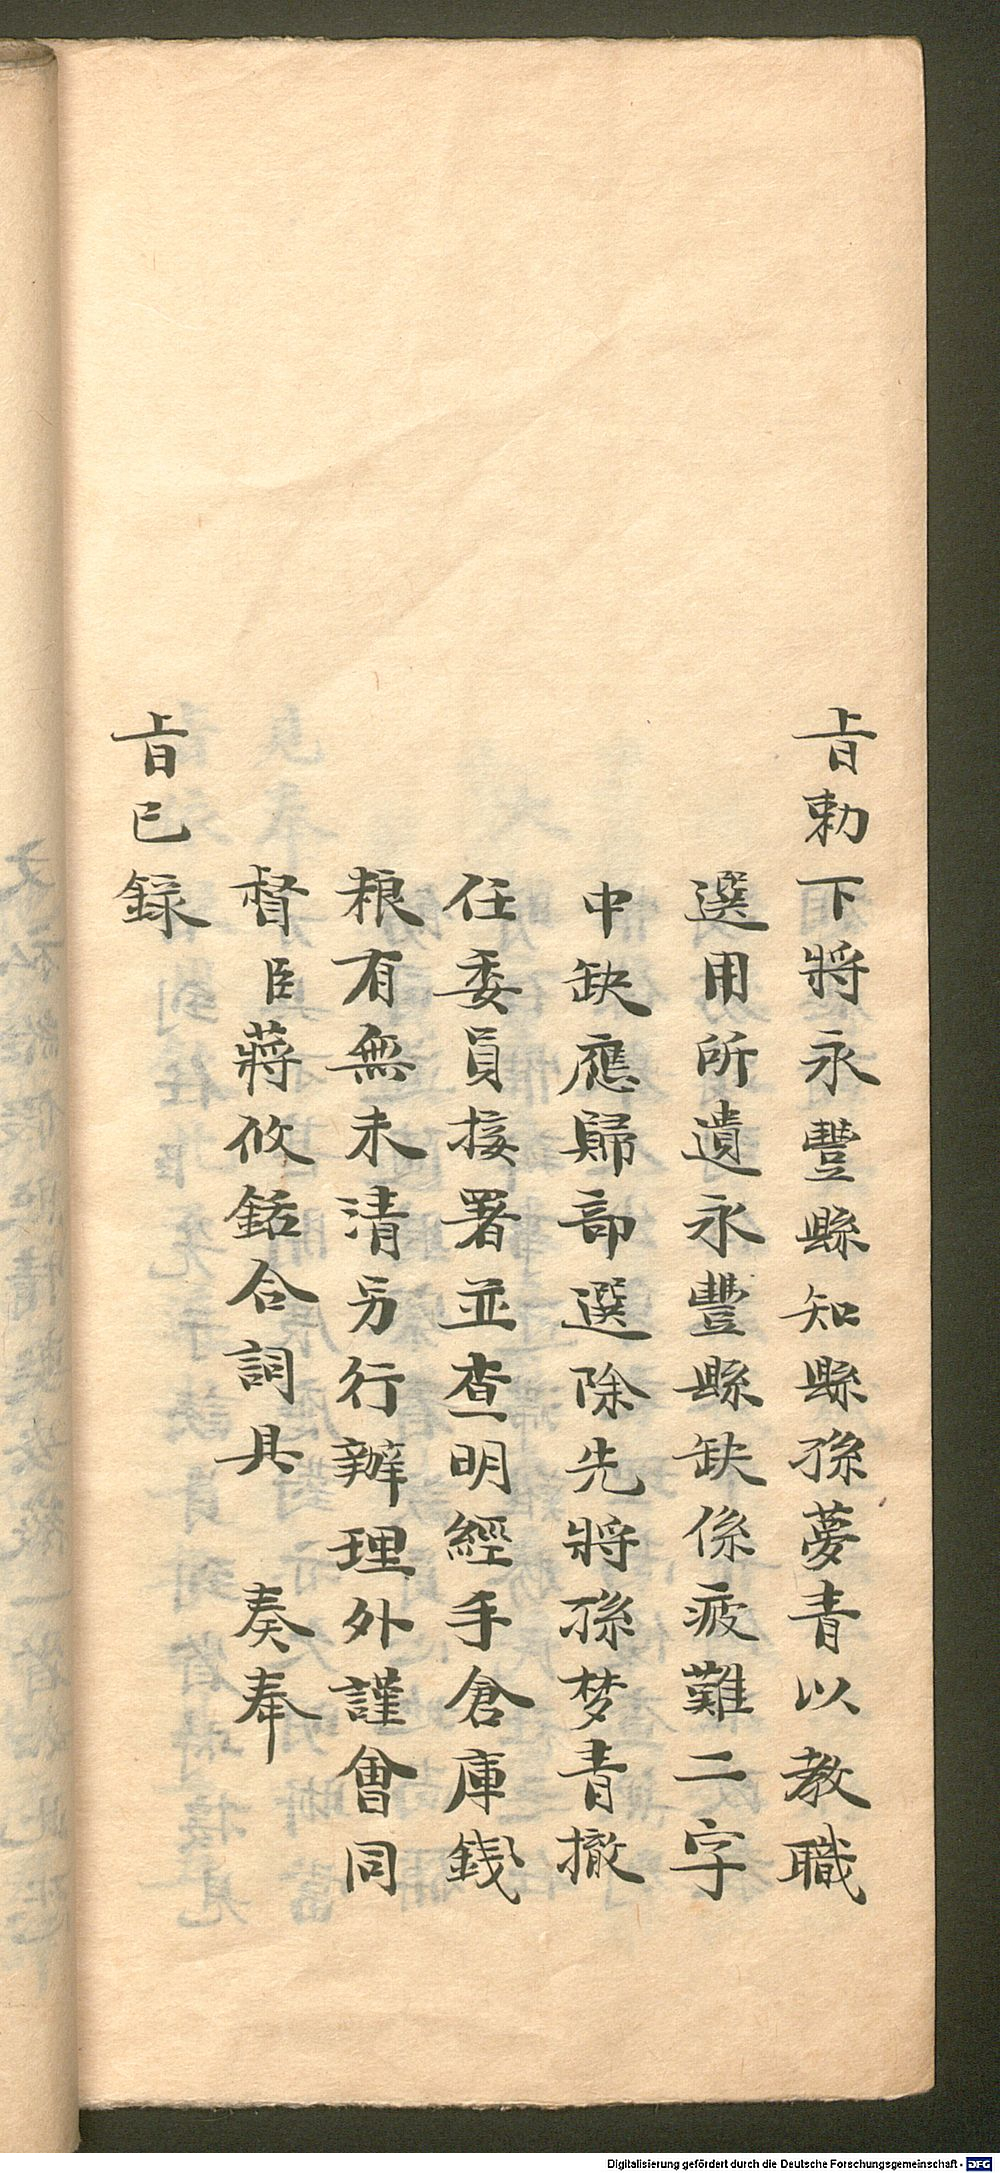 旨勅下將永豐縣知縣孫夢青以教職
選用所遺永豐縣缺係疲難二字
中缺應歸部選除先將孫梦青撤
任委員接署並查明經手倉庫錢
粮有無未清另行辦理外謹會同
督臣蔣攸銛合詞具　奏奉
旨已録
Digitalisierung gefördert durch die Deutsche Forschungsgemeinschaft - DFG